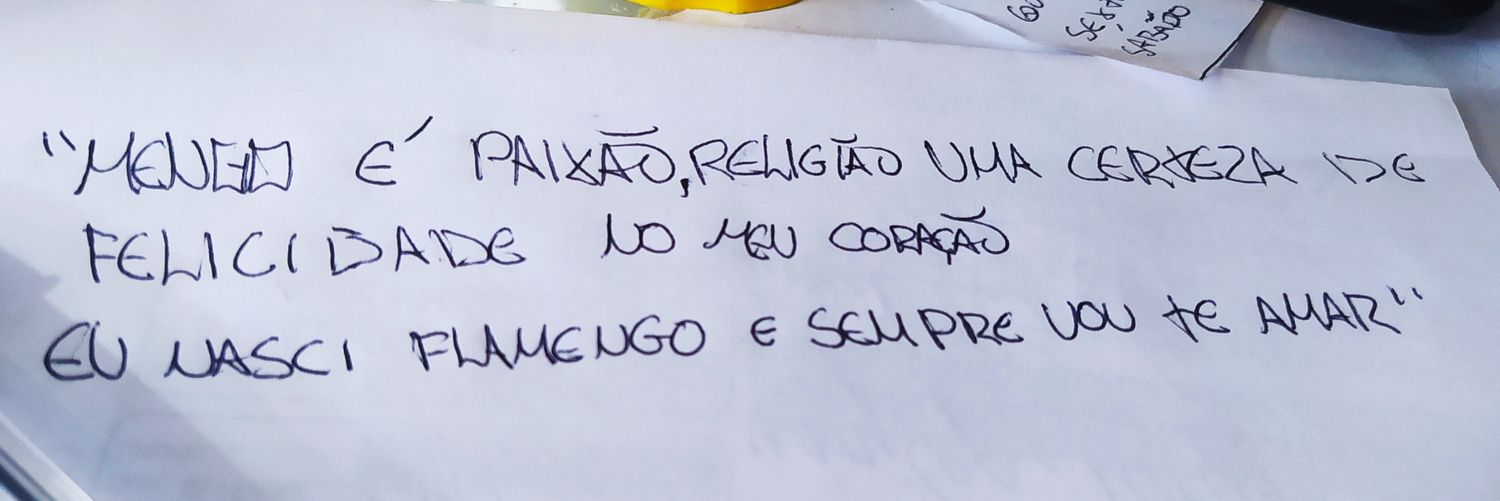 SEXTA
SÁBADO
"MENGO É PAIXÃO, RELIGIÃO UMA CERTEZA DE
FELICIDADE NO MEU CORAÇÃO
EU NASCI FLAMENGO E SEMPRE VOU TE AMAR"